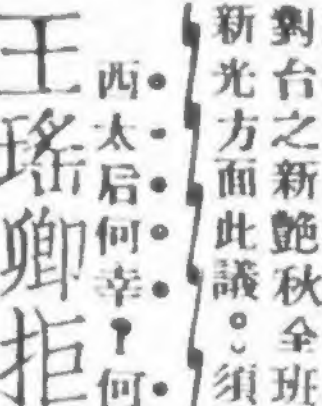 對台之新艷秋全班
新光方面此議。)須
西太后何幸?何
王瑤卿拒